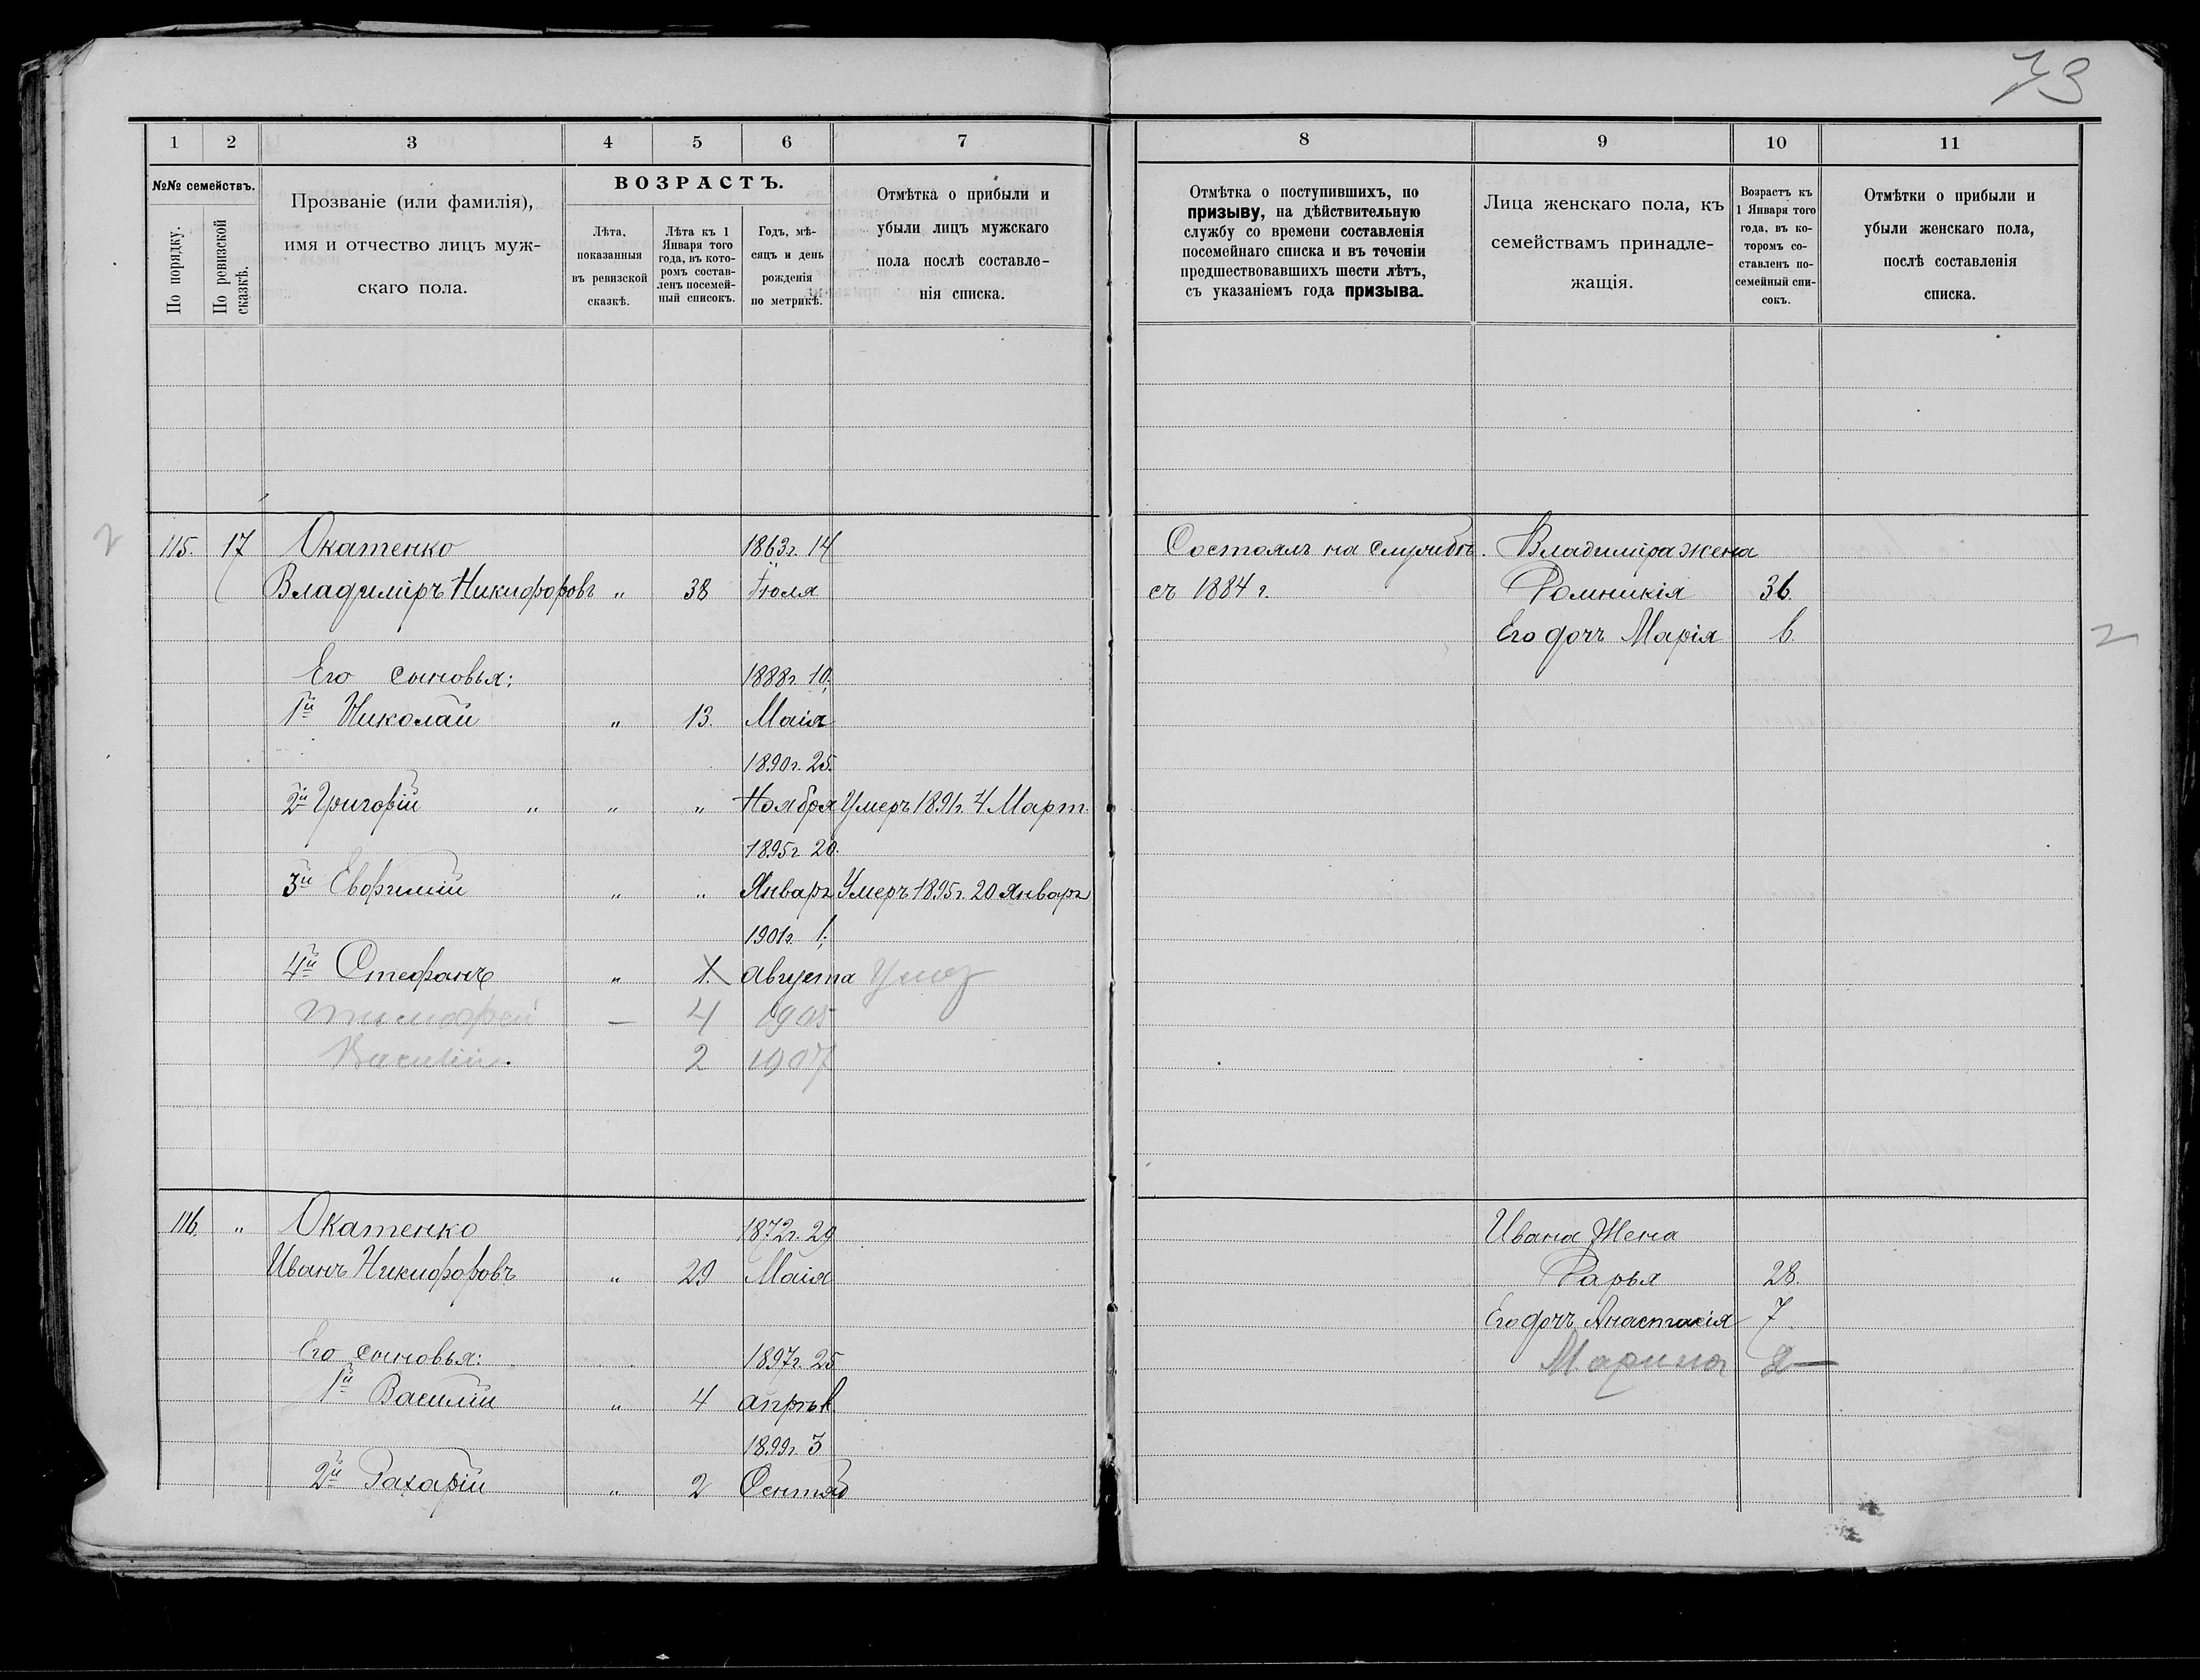 73
1 2 3 4 5 6 7
№№ семействъ.
По порядку.
По ревизской сказкѣ.
Прозваніе (или фамилія),
имя и отчество лицъ муж-
скаго пола.
ВОЗРАСТЪ.
Лѣта,
показанныя
въ ревизской
сказкѣ.
Лѣта къ 1
Января того
года, въ кото-
ромъ состав-
ленъ посемей-
ный списокъ.
Годъ, мѣ-
сяцъ и день
рожденія
по метрикѣ.
Отмѣтка о прибыли и
убыли лицъ мужскаго
пола послѣ составле-
нія списка.
115. 17 Окатенко 1863г. 14
Владиміръ Никифоровъ " 38 Іюля
Его сыновья: 1888г. 10;
1й Николай " 13. Маія
1890г. 25.
2й Григорій " " " Ноября Умеръ 1891г. 4 Март.
1895г 20.
3й Евфимій " " Январь Умеръ 1895г. 20 Январь
1901г. 1;
4й Стефанъ " 1. Августа Умер
Тимофей — 4 1905
Василій. 2 1907
116. " Окатенко 1872г. 29
Иванъ Никифоровъ " 29 Маія
Его сыновья: 1897г. 25
1й Василій " 4 Апрѣл.
1899г. 3
2й Захарій " 2 Сентяб
8 9 10 11
Отмѣтка о поступившихъ, по
призыву, на дѣйствительную
службу со времени составленія
посемейнаго списка и въ теченіи
предшествовавшихъ шести лѣтъ,
съ указаніемъ года призыва.
Лица женскаго пола, къ
семействамъ принадле-
жащія.
Возрастъ къ
1 Января того
года, въ ко-
торомъ со-
ставленъ по-
семейный спи-
сокъ.
Отмѣтки о прибыли и
убыли женскаго пола,
послѣ составленія
списка.
Состоялъ на службѣ. Владиміра жена
съ 1884 г. Домникія 36.
Его дочь Марія 6.
Ивана Жена
Дарья 28.
Его дочь Анастасія 7
Марина 2 —